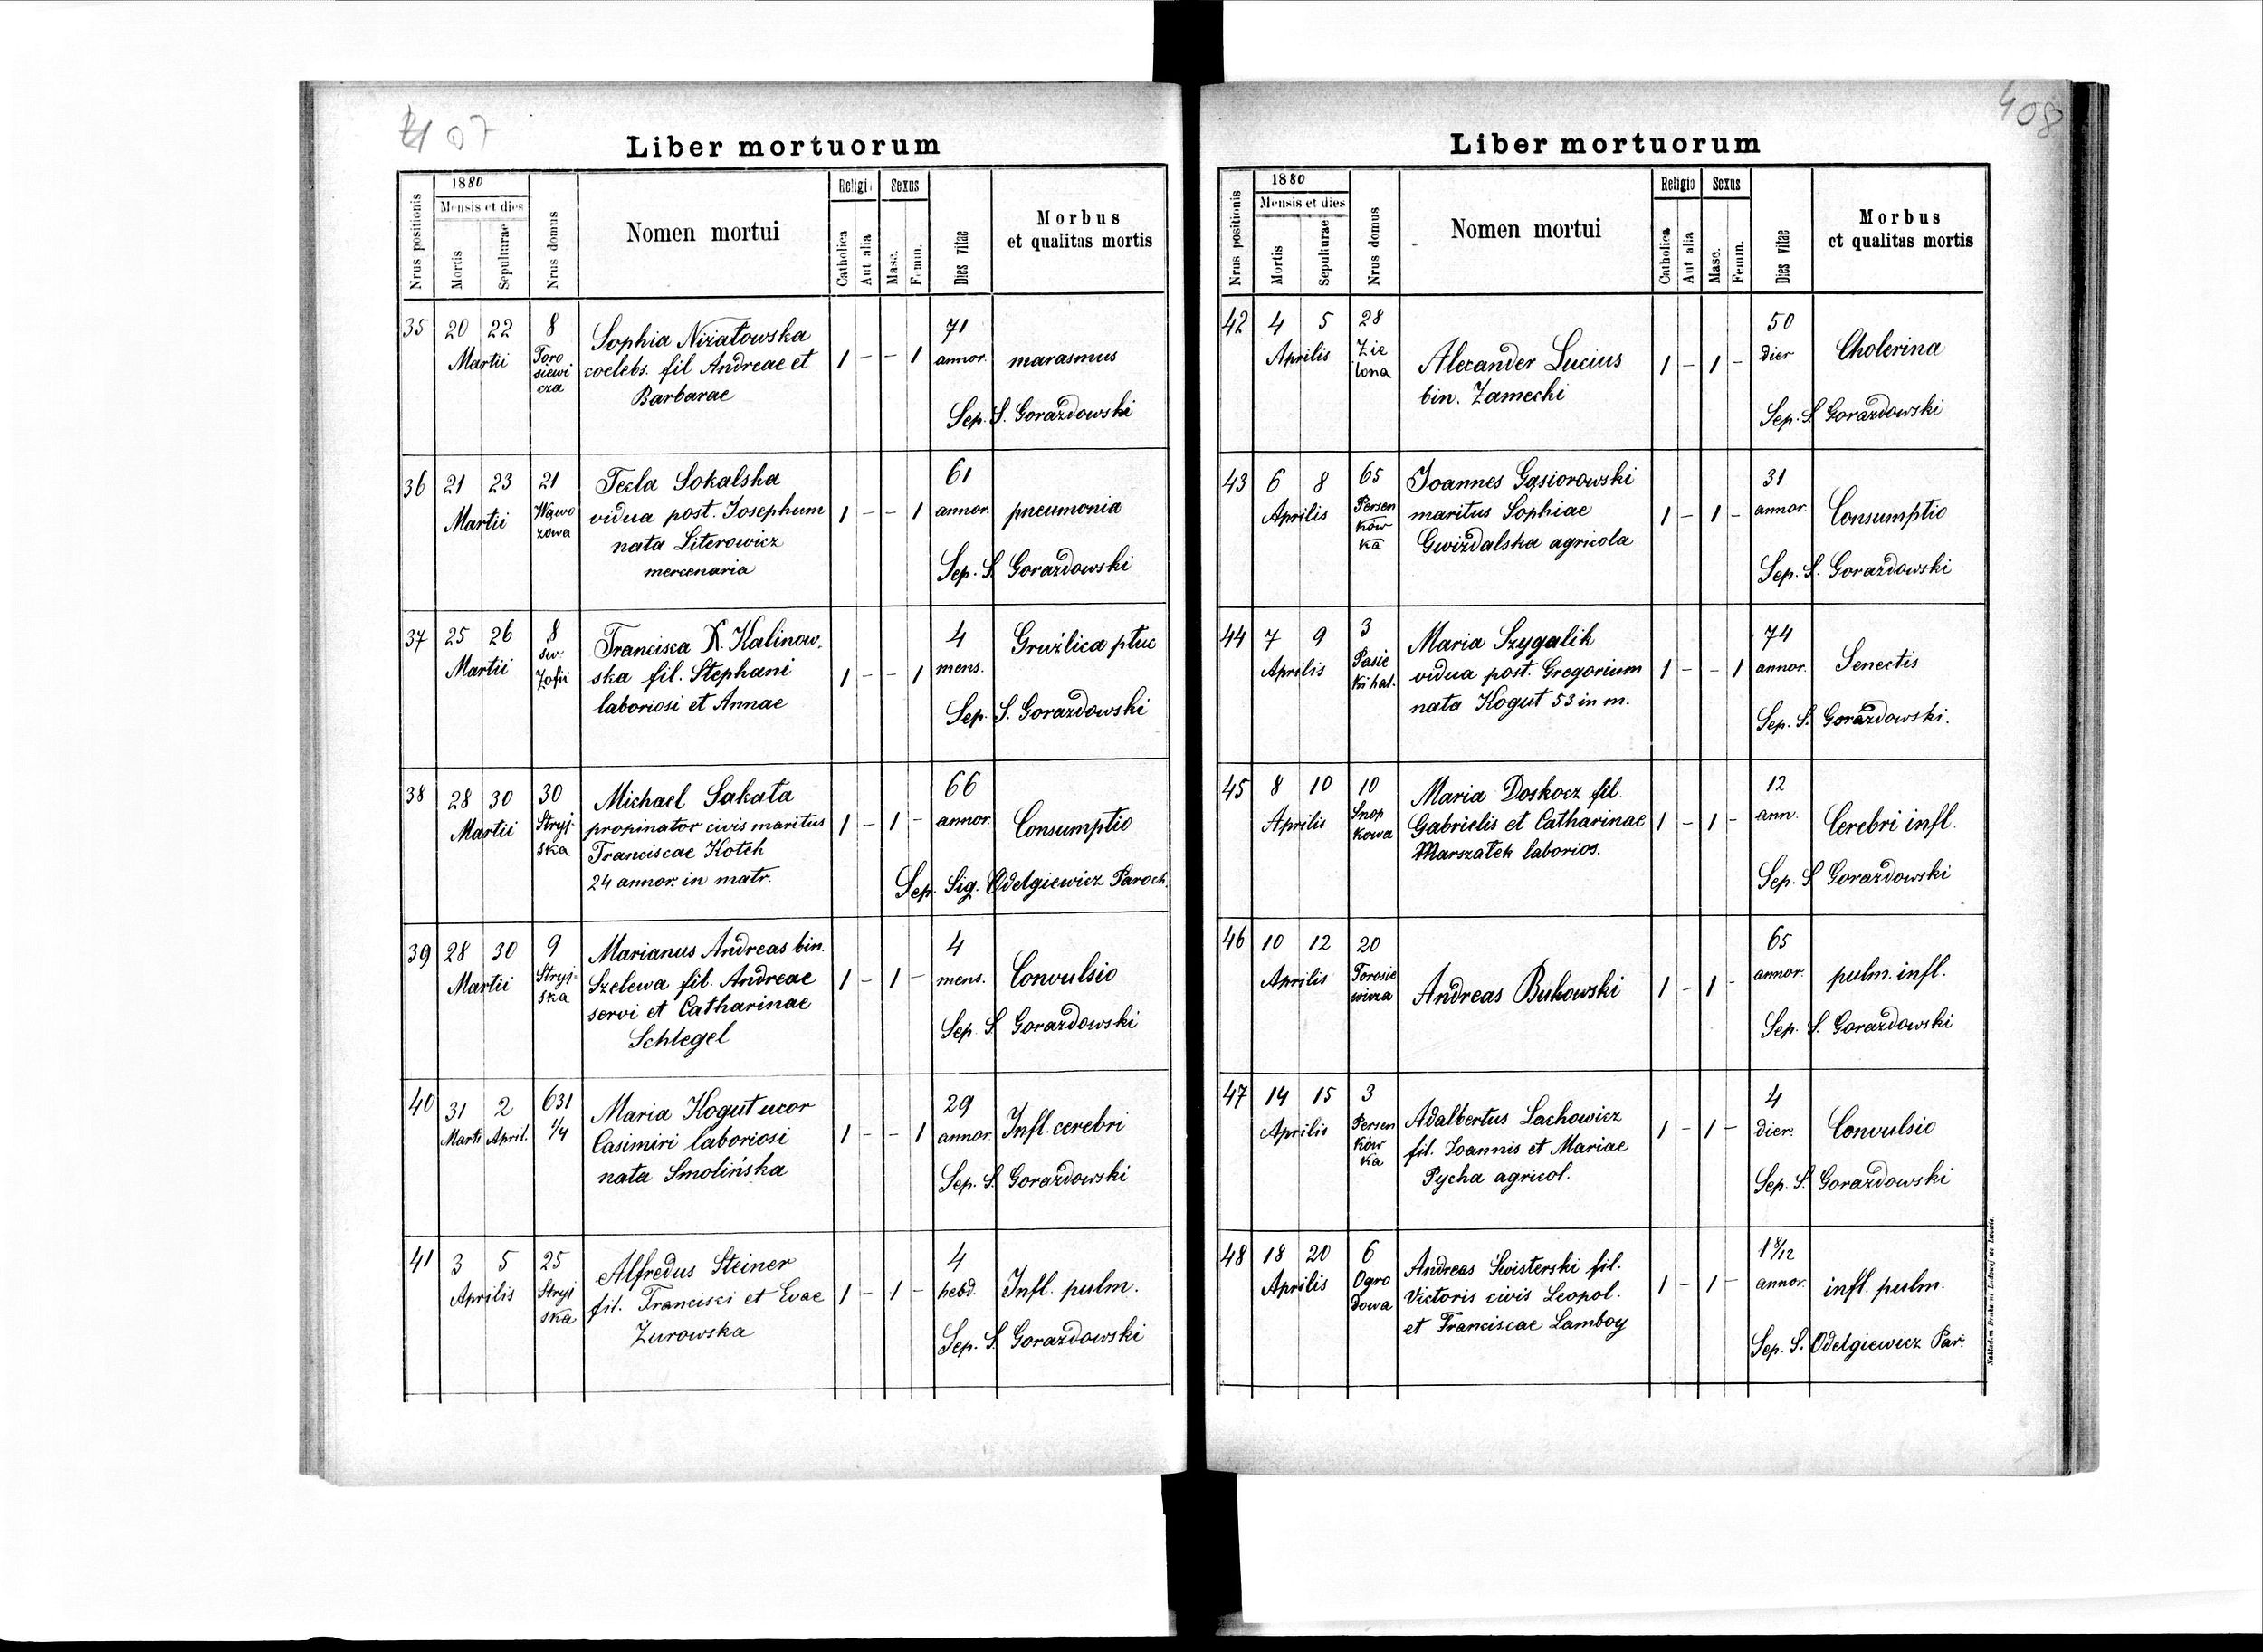 407
Liber mortuorum
Nrus positionis
1880
Mensis et dies
Mortis
Sepulturae
Nrus domus
Nomen mortui
Religi
Catholica
Aut alia
Sexus
Masc.
Femin.
Dies vitae
Morbus
et qualitas mortis
35 20 22 8 Sophia Niziałowska 71
Martii Toro siewi cza coelebs. fil Andreae et 1 – – 1 annor. marasmus
Barbarae
Sep. S. Gorazdowski
36 21 23 21 Tecla Sokalska 61
Martii Wąwo zowa vidua post. Josephum 1 – – 1 annor. pneumonia
nata Literowicz
mercenaria Sep. S. Gorazdowski
37 25 26 8 Francisca X. Kalinow. 4 Gruźlica płuc
Martii św. Zofii ska fil. Stephani 1 – – 1 mens.
laboriosi et Annae Sep. S. Gorazdowski
38 28 30 30 Michael Sakata 66
Martii Stryj- ska propinator civis maritus 1 – 1 – annor. Consumptio
Franciscae Kotek
24 annor. in matr. Sep. Sig. Odelgiewicz Paroch.
39 28 30 9 Marianus Andreas bin. 4
Martii Stryj- ska Szelewa fil. Andreae 1 – 1 – mens. Convulsio
servi et Catharinae
Schlegel Sep. S. Gorazdowski
40 31 2 631 Maria Kogut uxor 29
Marti April. 1/4 Casimiri laboriosi 1 – – 1 annor. Infl. cerebri
nata Smolińska Sep. S. Gorazdowski
41 3 5 25 Alfredus Steiner 4
Aprilis Stryj ska fil. Francisci et Evae 1 – 1 – hebd. Infl. pulm.
Żurowska Sep. S. Gorazdowski
408
Liber mortuorum
Nrus positionis
1880
Mensis et dies
Mortis
Sepulturae
Nrus domus
Nomen mortui
Religio
Catholica
Aut alia
Sexus
Masc.
Femin.
Dies vitae
Morbus
et qualitas mortis
42 4 5 28 50
Aprilis Zie lona Alexander Lucius 1 – 1 – dier Cholerina
bin. Zamecki
Sep. S. Gorazdowski
43 6 8 65 Joannes Gąsiorowski 31
Aprilis Persen ków ka maritus Sophiae 1 – 1 – annor. Consumptio
Gwizdalska agricola
Sep. S. Gorazdowski
44 7 9 3 Maria Szygalik 74
Aprilis Pasie ki hal. vidua post. Gregorium 1 – – 1 annor. Senectis
nata Kogut 53 in m.
Sep. S. Gorazdowski.
45 8 10 10 Maria Doskocz fil. 12
Aprilis Snop kowa Gabrielis et Catharinae 1 – 1 – ann. Cerebri infl.
Marszałek laborios.
Sep. S. Gorazdowski
46 10 12 20 65
Aprilis Torosie wicza Andreas Bukowski 1 – 1 – annor. pulm. infl.
Sep. S. Gorazdowski
47 14 15 3 Adalbertus Lachowicz 4
Aprilis Persen ków ka fil. Joannis et Mariae 1 – 1 – dier. Convulsio
Pycha agricol. Sep. S. Gorazdowski
48 18 20 6 Andreas Świsterski fil. 1 8/12
Aprilis Ogro dowa Victoris civis Leopol. 1 – 1 – annor. infl. pulm.
et Franciscae Lamboy
Sep. S. Odelgiewicz Par.
Nakładem Drukarni Ludowej we Lwowie.